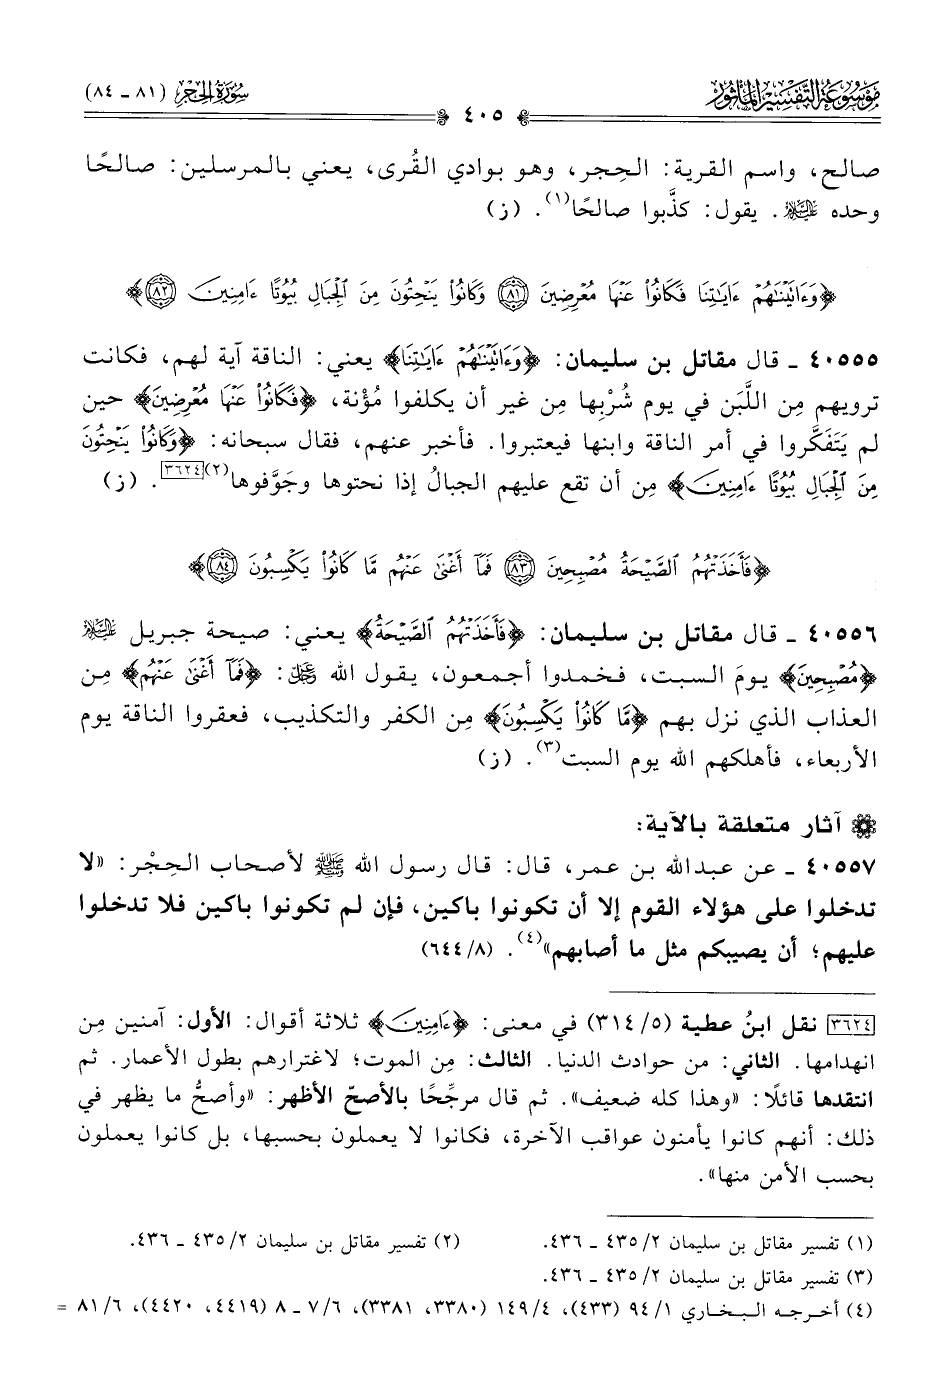 مَوْسُوعَة التَّفْسِير المَأْثُور
سُورَةُ الحِجْر (٨١ - ٨٤)
٤٠٥
صالح، واسم القرية: الحِجر، وهو بوادي القُرى، يعني بالمرسلين: صالحًا
وحده ﵇. يقول: كذَّبوا صالحًا(١). (ز)
﴿وَءَاتَيْنَٰهُمْ ءَايَٰتِنَا فَكَانُوا۟ عَنْهَا مُعْرِضِينَ ٨١ وَكَانُوا۟ يَنْحِتُونَ مِنَ ٱلْجِبَالِ بُيُوتًا ءَامِنِينَ ٨٢﴾
٤٠٥٥٥ - قال مقاتل بن سليمان: ﴿وَءَاتَيْنَٰهُمْ ءَايَٰتِنَا﴾ يعني: الناقة آية لهم، فكانت
ترويهم مِن اللَّبَن في يوم شُرْبِها مِن غير أن يكلفوا مُؤْنة، ﴿فَكَانُوا۟ عَنْهَا مُعْرِضِينَ﴾ حين
لم يَتَفَكَّروا في أمر الناقة وابنها فيعتبروا. فأخبر عنهم، فقال سبحانه: ﴿وَكَانُوا۟ يَنْحِتُونَ
مِنَ ٱلْجِبَالِ بُيُوتًا ءَامِنِينَ﴾ مِن أن تقع عليهم الجبالُ إذا نحتوها وجَوَّفوها(٢)[٣٦٢٤]. (ز)
﴿فَأَخَذَتْهُمُ ٱلصَّيْحَةُ مُصْبِحِينَ ٨٣ فَمَآ أَغْنَىٰ عَنْهُم مَّا كَانُوا۟ يَكْسِبُونَ ٨٤﴾
٤٠٥٥٦ - قال مقاتل بن سليمان: ﴿فَأَخَذَتْهُمُ ٱلصَّيْحَةُ﴾ يعني: صيحة جبريل ﵇
﴿مُصْبِحِينَ﴾ يومَ السبت، فخمدوا أجمعون، يقول الله ﷿: ﴿فَمَآ أَغْنَىٰ عَنْهُم﴾ مِن
العذاب الذي نزل بهم ﴿مَّا كَانُوا۟ يَكْسِبُونَ﴾ مِن الكفر والتكذيب، فعقروا الناقة يوم
الأربعاء، فأهلكهم الله يوم السبت(٣). (ز)
آثار متعلقة بالآية:
٤٠٥٥٧ - عن عبدالله بن عمر، قال: قال رسول الله ﷺ لأصحاب الحِجْر: «لا
تدخلوا على هؤلاء القوم إلا أن تكونوا باكين، فإن لم تكونوا باكين فلا تدخلوا
عليهم؛ أن يصيبكم مثل ما أصابهم»(٤). (٨/ ٦٤٤)
[٣٦٢٤] نقل ابنُ عطية (٥/ ٣١٤) في معنى: ﴿ءَامِنِينَ﴾ ثلاثة أقوال: الأول: آمنين مِن
انهدامها. الثاني: من حوادث الدنيا. الثالث: مِن الموت؛ لاغترارهم بطول الأعمار. ثم
انتقدها قائلًا: «وهذا كله ضعيف». ثم قال مرجِّحًا بالأصحّ الأظهر: «وأصحُّ ما يظهر في
ذلك: أنهم كانوا يأمنون عواقب الآخرة، فكانوا لا يعملون بحسبها، بل كانوا يعملون
بحسب الأمن منها».
(١) تفسير مقاتل بن سليمان ٢/ ٤٣٥ - ٤٣٦. (٢) تفسير مقاتل بن سليمان ٢/ ٤٣٥ - ٤٣٦.
(٣) تفسير مقاتل بن سليمان ٢/ ٤٣٥ - ٤٣٦.
(٤) أخرجه البخاري ١/ ٩٤ (٤٣٣)، ٤/ ١٤٩ (٣٣٨٠، ٣٣٨١)، ٦/ ٧ - ٨ (٤٤١٩، ٤٤٢٠)، ٦/ ٨١ =